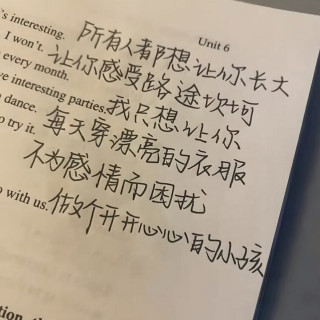 's interesting. 所有人都想让你长大
Unit 6
I won't. 让你感受路途坎坷
every month.
ve interesting parties. 我只想让你
dance. 每天穿漂亮的衣服
o try it.
不为感情而困扰
o with us. 做个开开心心的小孩